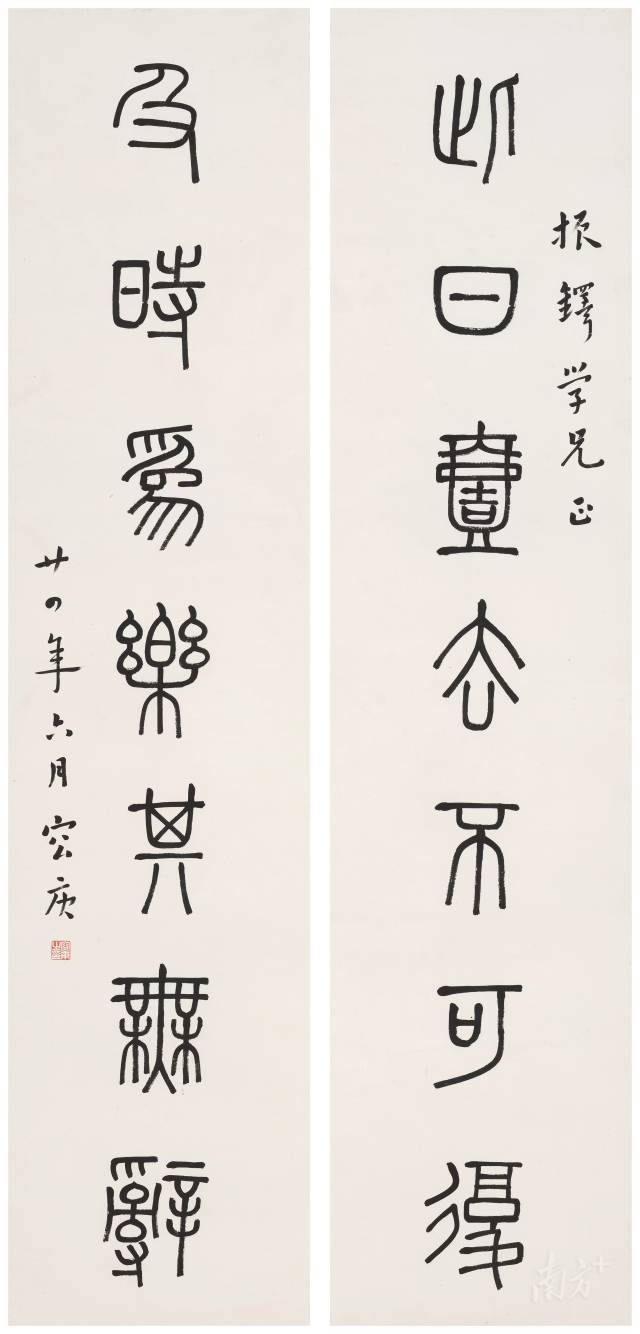 振鐸学兄正
此日壹去不可復
及時爲樂其無辭
廿四年六月容庚
南方+